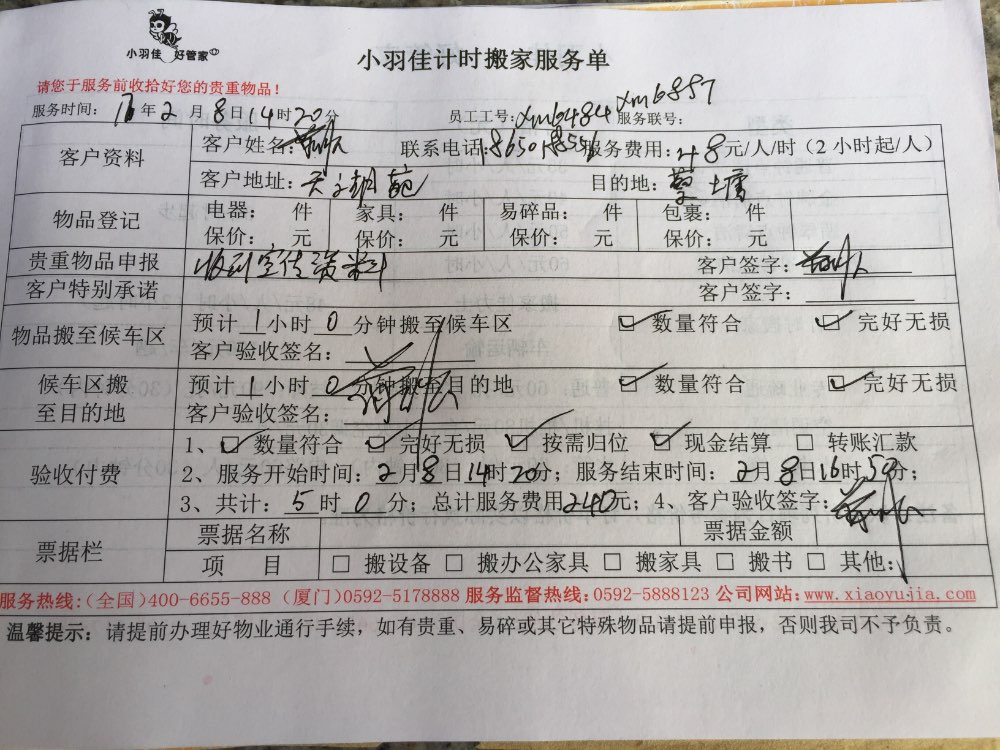 小羽佳 好管家
小羽佳计时搬家服务单
请您于服务前收拾好您的贵重物品！
服务时间：17年2月8日14时20分 员工工号：xm6484 服务联号：xm6857
客户资料 客户姓名： 联系电话： 服务费用：48元/人/时（2小时起/人）
客户地址：天湖苑 目的地：
物品登记 电器： 件 家具： 件 易碎品： 件 包裹： 件
保价： 元 保价： 元 保价： 元 保价： 元
贵重物品申报 收到宣传资料 客户签字：
客户特别承诺 客户签字：
物品搬至候车区 预计1小时0分钟搬至候车区 ☑ 数量符合 ☑ 完好无损
客户验收签名：
候车区搬至目的地 预计1小时0分钟搬至目的地 ☑ 数量符合 ☑ 完好无损
客户验收签名：
验收付费 1、☑ 数量符合 ☑ 完好无损 ☑ 按需归位 ☑ 现金结算 □ 转账汇款
2、服务开始时间：2月8日14时20分；服务结束时间：2月8日16时50分；
3、共计：5时0分；总计服务费用240元；4、客户验收签字：
票据栏 票据名称 票据金额
项 目 □ 搬设备 □ 搬办公家具 □ 搬家具 □ 搬书 □ 其他：
服务热线:(全国)400-6655-888 (厦门)0592-5178888 服务监督热线:0592-5888123 公司网站:www.xiaoyujia.com
温馨提示：请提前办理好物业通行手续，如有贵重、易碎或其它特殊物品请提前申报，否则我司不予负责。